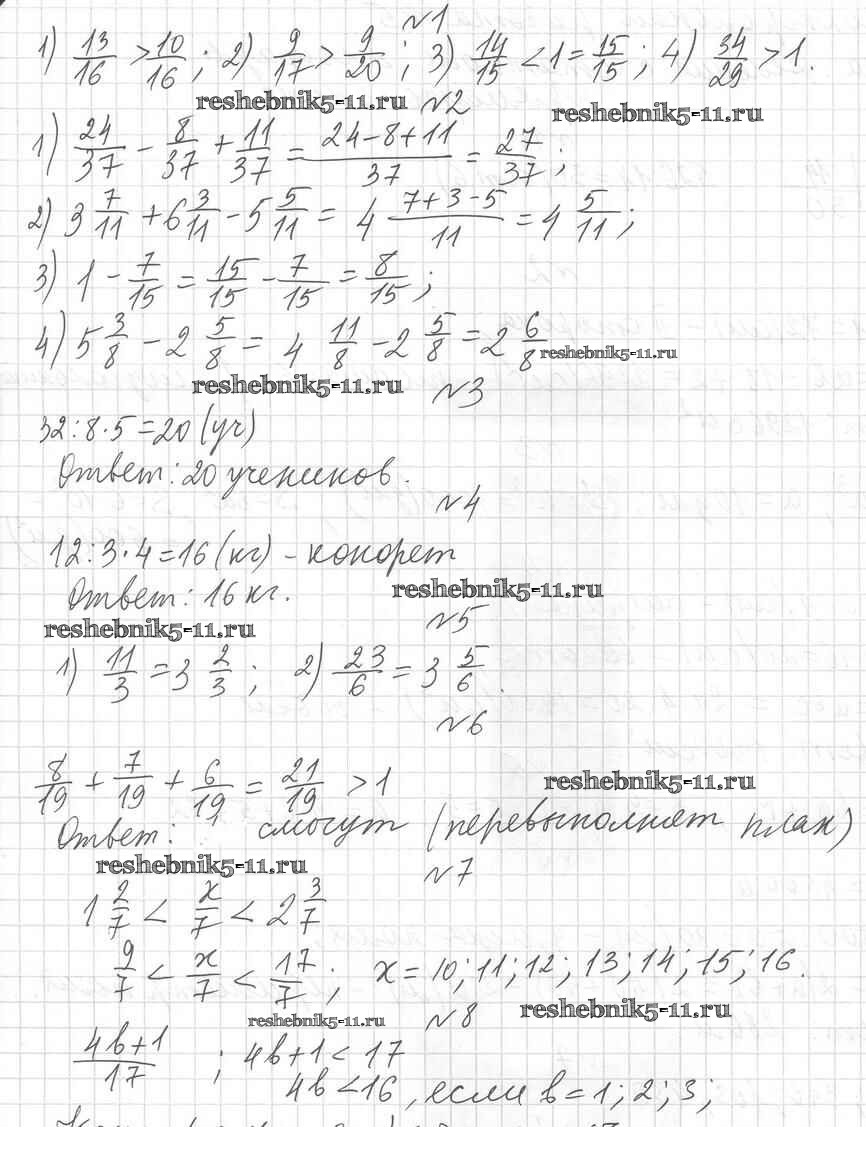 №1
1) 13/16 > 10/16; 2) 9/17 > 9/20; 3) 14/15 < 1 = 15/15; 4) 34/29 > 1.
reshebnik5-11.ru №2 reshebnik5-11.ru
1) 24/37 - 8/37 + 11/37 = (24-8+11)/37 = 27/37;
2) 3 7/11 + 6 3/11 - 5 5/11 = 4 (7+3-5)/11 = 4 5/11;
3) 1 - 7/15 = 15/15 - 7/15 = 8/15;
4) 5 3/8 - 2 5/8 = 4 11/8 - 2 5/8 = 2 6/8 reshebnik5-11.ru
reshebnik5-11.ru №3
32:8·5=20 (уч)
Ответ: 20 учеников.
№4
12:3·4=16 (кг) -
Ответ: 16 кг. reshebnik5-11.ru
reshebnik5-11.ru №5
1) 11/3 = 3 2/3; 2) 23/6 = 3 5/6.
№6
8/19 + 7/19 + 6/19 = 21/19 > 1 reshebnik5-11.ru
Ответ: смогут (перевыполнят план)
reshebnik5-11.ru №7
1 2/7 < x/7 < 2 3/7
9/7 < x/7 < 17/7; x = 10; 11; 12; 13; 14; 15; 16.
reshebnik5-11.ru №8 reshebnik5-11.ru
(4b+1)/17; 4b+1 < 17
4b < 16, если b = 1; 2; 3;